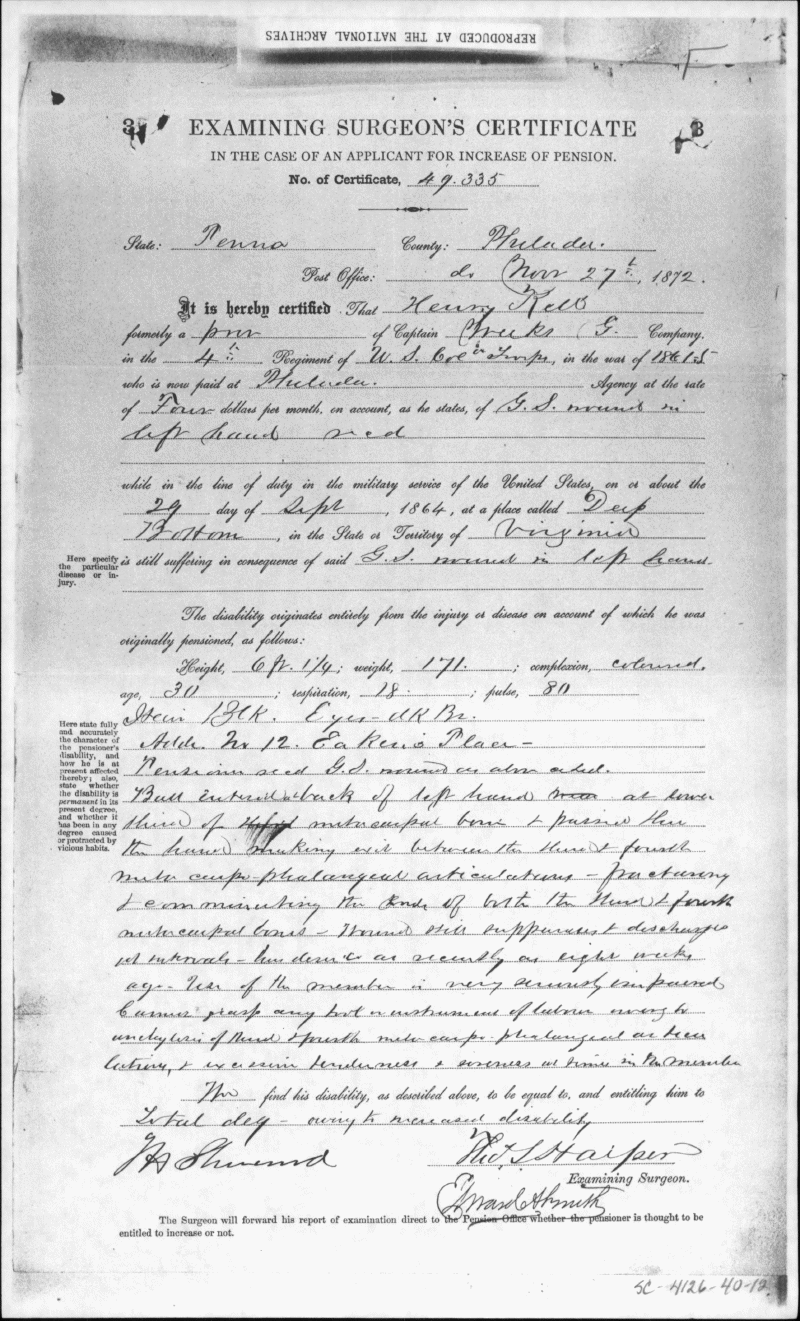 REPRODUCED AT THE NATIONAL ARCHIVES
3 EXAMINING SURGEON'S CERTIFICATE 3
IN THE CASE OF AN APPLICANT FOR INCREASE OF PENSION.
No. of Certificate, 49.335
State: Penna County: Philada.
Post Office: do Nov 27th, 1872.
It is hereby certified That Henry
formerly a priv of Captain Weeks G. Company.
in the 4th Regiment of U. S. Cold Troops, in the war of 1861-5
who is now paid at Philada. Agency at the rate
of Four dollars per month, on account, as he states, of G. S. wound in
left hand recd
while in the line of duty in the military service of the United States, on or about the
29 day of Sept, 1864, at a place called Deep
Bottom, in the State or Territory of Virginia
Here specify the particular disease or injury.
is still suffering in consequence of said G. S. wound in left hand.
The disability originates entirely from the injury or disease on account of which he was
originally pensioned, as follows:
Height, 6 ft. 1/4; weight, 171.; complexion, colored.
age, 30; respiration, 18; pulse, 80
Here state fully and accurately the character of the pensioner's disability, and how he is at present affected thereby; also, state whether the disability is permanent in its present degree, and whether it has been in any degree caused or protracted by vicious habits.
Hair Blk. Eyes - dk Br.
Addr. No 12. Eakins Place -
Pensioner recd G. S. wound as above stated.
Ball entered back of left hand at lower
third of metacarpal bone & passed thru
the hand making exit between the third & fourth
metacarpo-phalangeal articulations - fracturing
& comminuting the ends of both the third & fourth
metacarpal bones - Wound still suppurates & discharges
at intervals - as recently as eight weeks
ago. Use of the member is very seriously impaired
Cannot grasp any tool or instrument of labour owing to
anchylosis of third & fourth metacarpo-phalangeal articu
lations, & excessive tenderness & soreness at times in the member
We find his disability, as described above, to be equal to, and entitling him to
Total deg - owing to increased disability
J H Sherwood Theo. S Harper
Examining Surgeon.
Edward A Smith
The Surgeon will forward his report of examination direct to the Pension Office whether the pensioner is thought to be
entitled to increase or not.
SC-4126-40-12